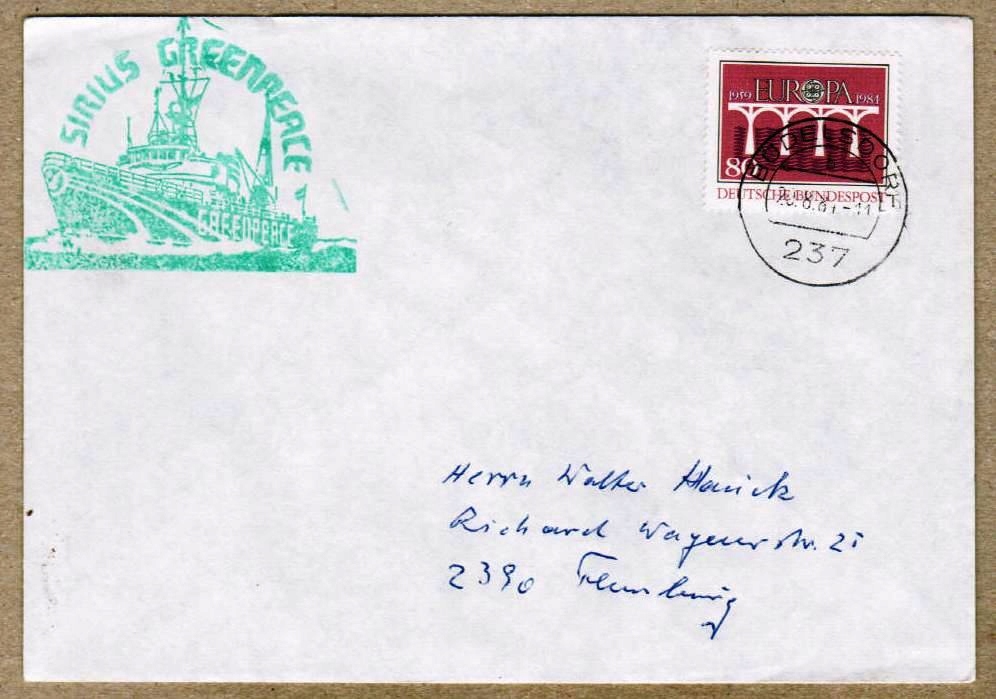 SIRIUS GREENPEACE
GREENPEACE
1959 EUROPA 1984
80
DEUTSCHE BUNDESPOST
BÜDELSDORF
237
Herrn Walter Hanick
Richard Wagnerstr. 21
2390 Flensburg